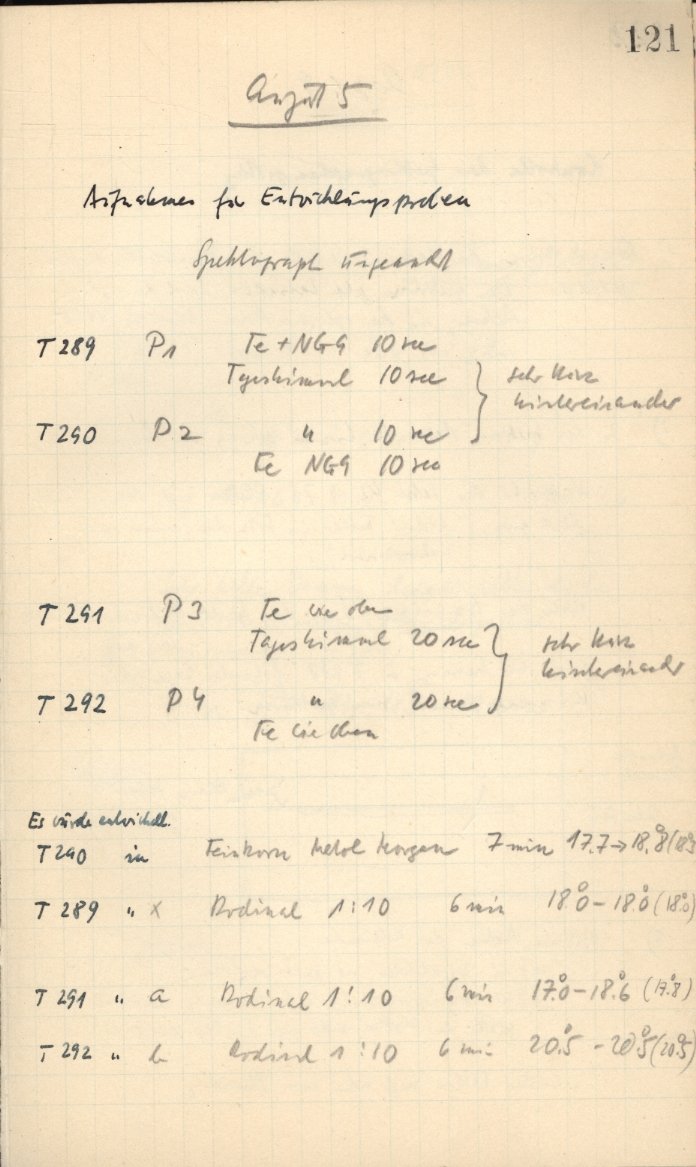 121
August 5
Aufnahmen für Entwicklungsproben
Spektrograph
T 289 P1 Fe + NG9 10 sec
Tageshimmel 10 sec } sehr kurz
hintereinander
T 290 P2 " 10 sec
Fe NG9 10 sec
T 291 P3 Fe wie oben
Tageshimmel 20 sec } sehr kurz
hintereinander
T 292 P4 " 20 sec
Fe wie oben
Es wurde entwickelt.
T 290 in Feinkorn Metol Morgan 7 min 17.7 → 18.°8
T 289 " x Rodinal 1:10 6 min 18.°0 – 18.°0 (18.°0)
T 291 " a Rodinal 1:10 6 min 17.°0 – 18.°6 (17.°8)
T 292 " b Rodinal 1:10 6 min 20.°5 – 20.°5 (20.°5)